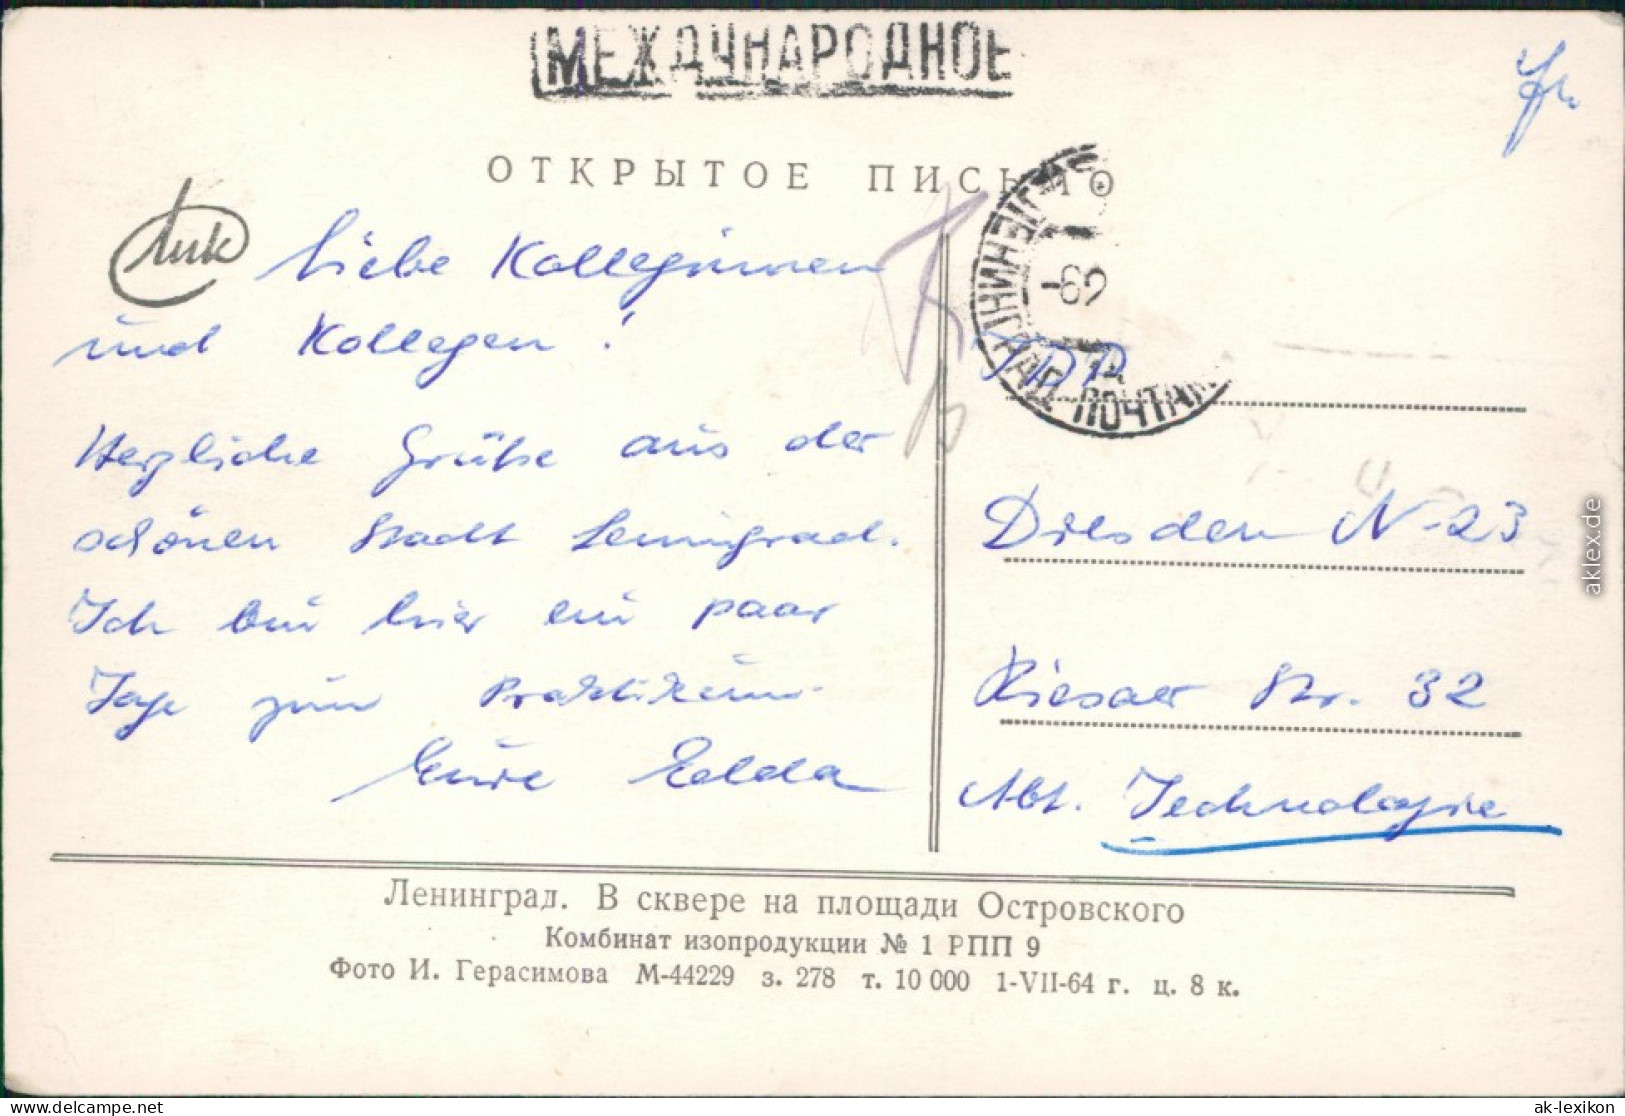 МЕЖДУНАРОДНОЕ
ОТКРЫТОЕ ПИСЬМО
Liebe Kolleginnen
und Kollegen!
Herzliche Grüße aus der
schönen Stadt Leningrad.
Ich bin hier ein paar
Tage zum Praktikum.
Eure Edda
ЛЕНИНГРАД ПОЧТАМТ
Dresden N-23
Riesaer Str. 32
Abt. Technologie
Ленинград. В сквере на площади Островского
Комбинат изопродукции № 1 РПП 9
Фото И. Герасимова М-44229 з. 278 т. 10 000 1-VII-64 г. ц. 8 к.
aklex.de
delcampe.net
ak-lexikon